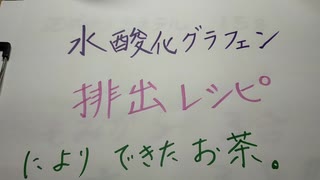 水酸化グラフェン
排出レシピ
によりできたお茶。